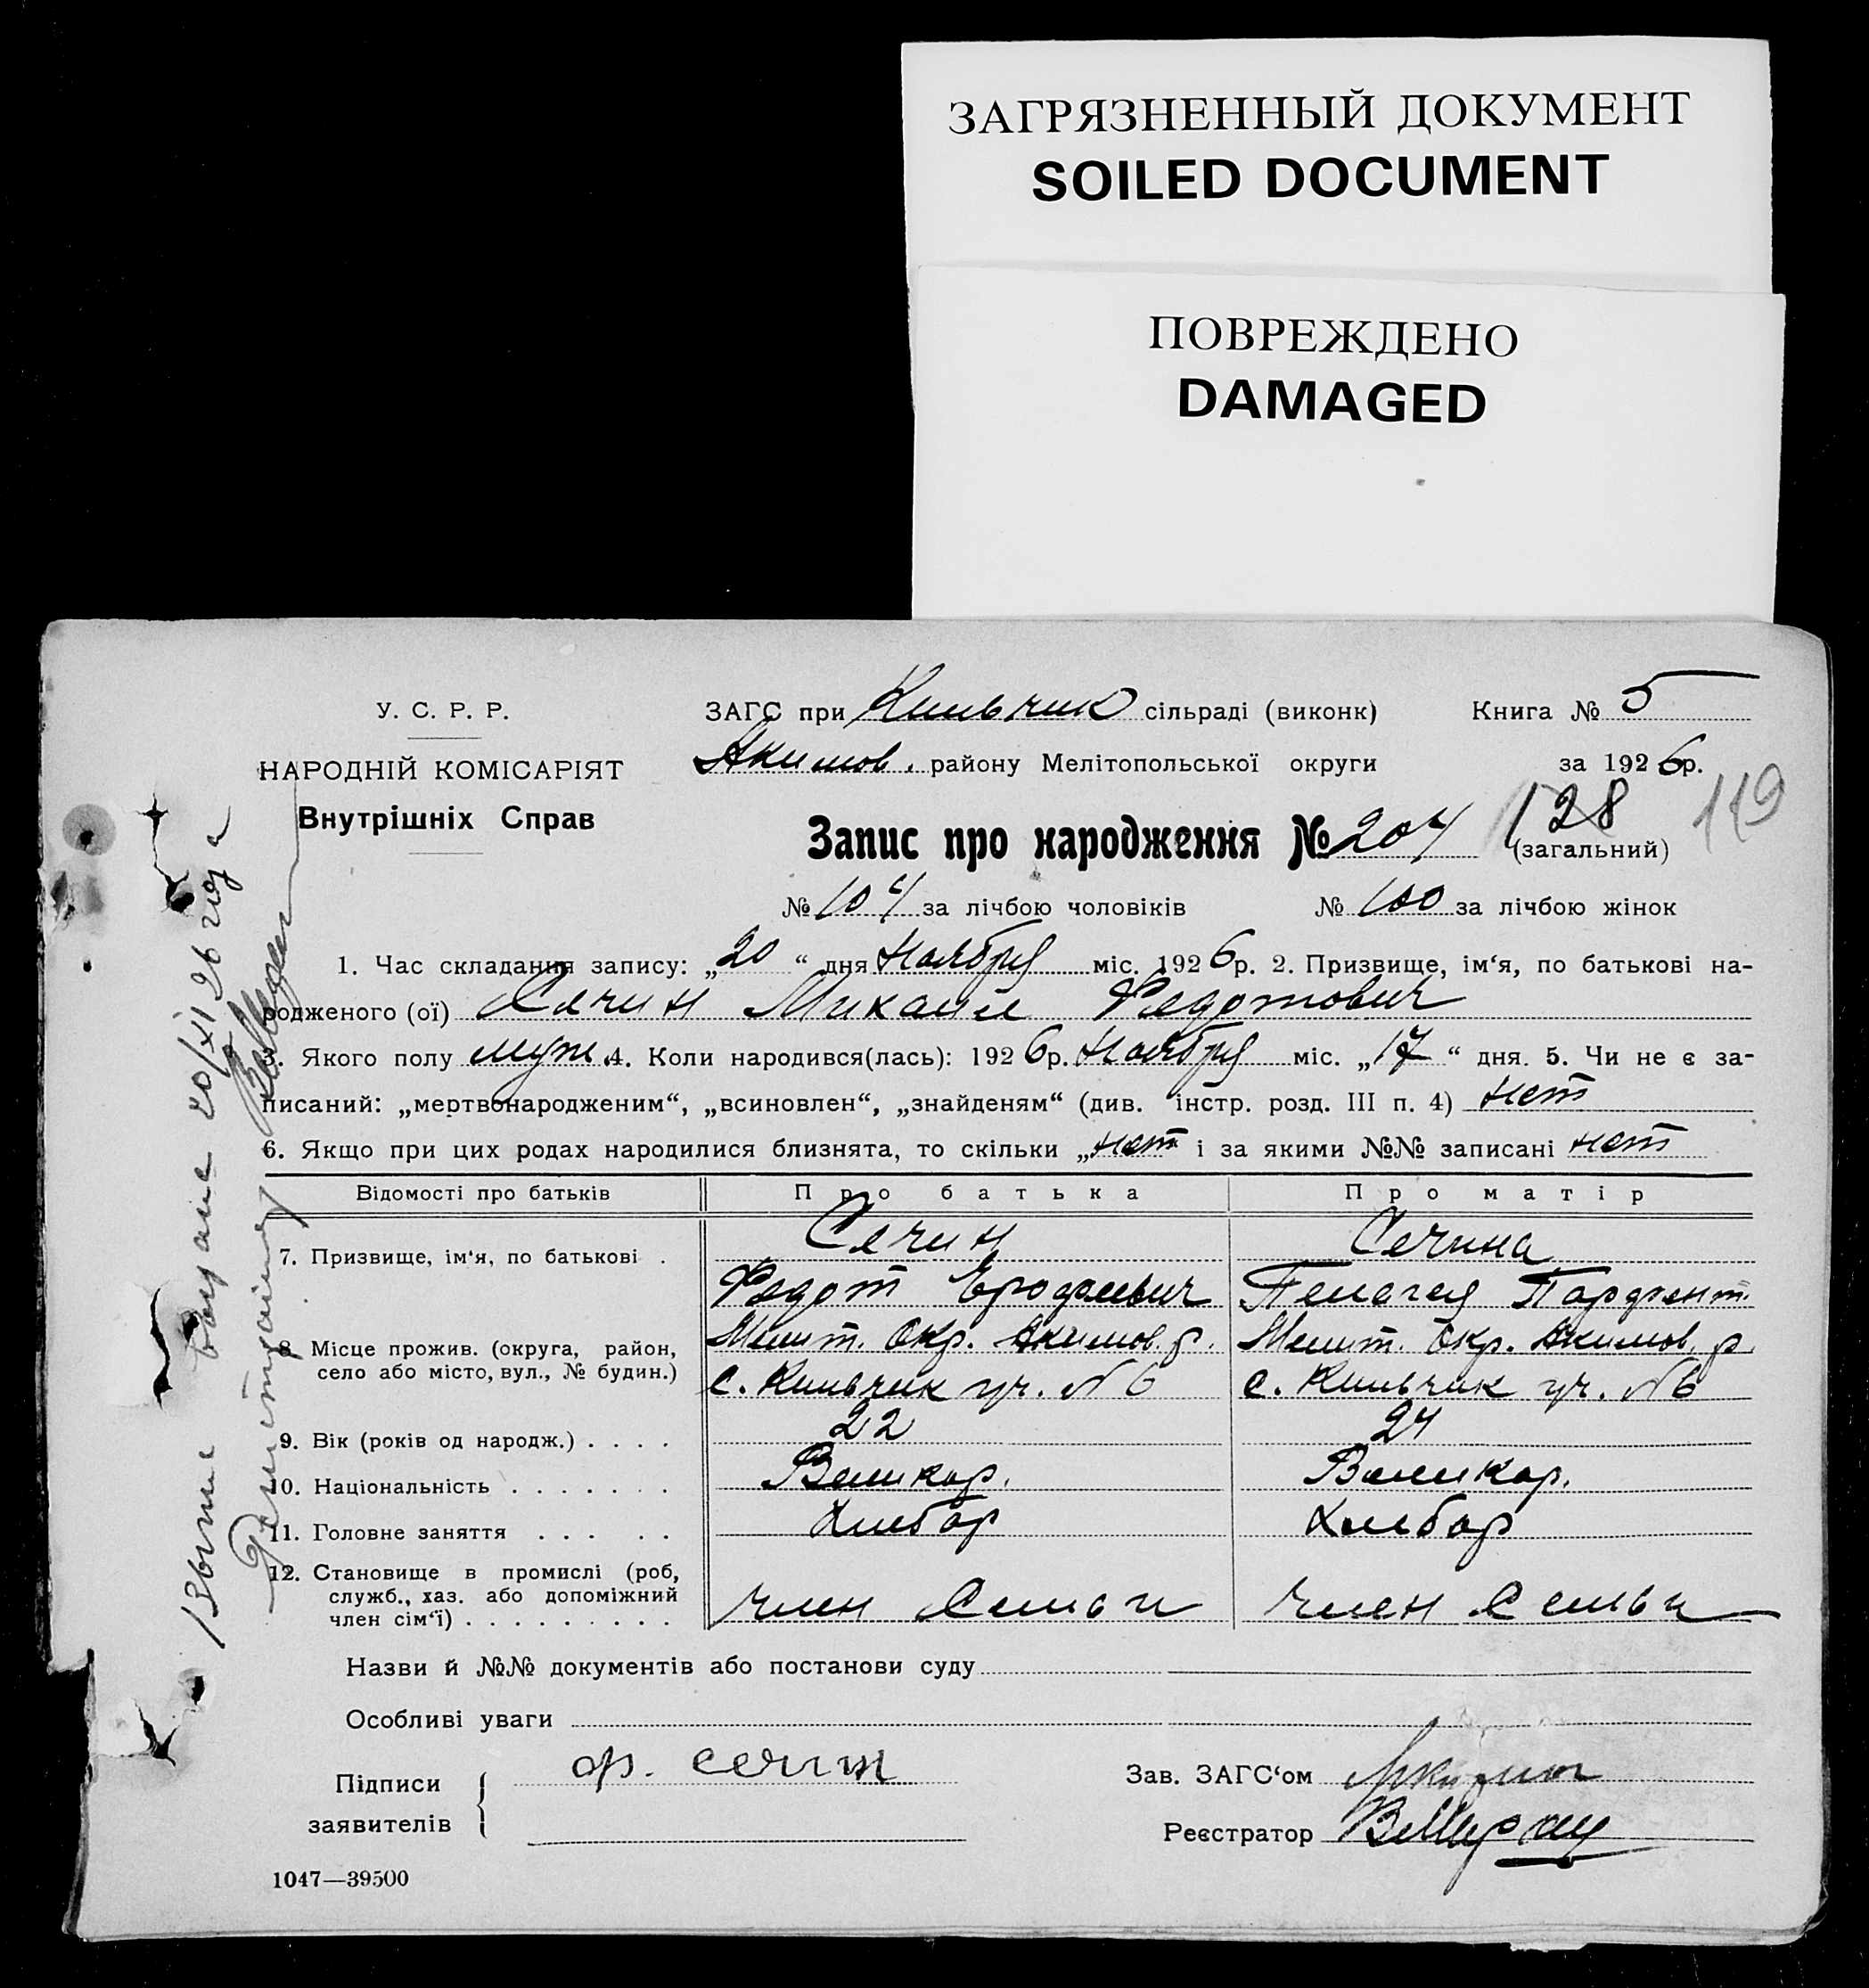 ЗАГРЯЗНЕННЫЙ ДОКУМЕНТ
SOILED DOCUMENT
ПОВРЕЖДЕНО
DAMAGED
У. С. Р. Р.
НАРОДНІЙ КОМІСАРІЯТ
Внутрішніх Справ
ЗАГС при Кильчик сільраді (виконк) Книга № 5
Акимов. району Мелітопольської округи за 1926р.
119
Запис про народження № 204 128
(загальний)
№ 104 за лічбою чоловіків № 100 за лічбою жінок
1. Час складання запису: „20“ дня Ноября міс. 1926р. 2. Призвище, ім‘я, по батькові на-
родженого (ої) Сечин Михаил Федотович
3. Якого полу муж. 4. Коли народився(лась): 1926р. Ноября міс. „17“ дня. 5. Чи не є за-
писаний: „мертвонародженим“, „всиновлен“, „знайденям“ (див. інстр. розд. III п. 4) нет
6. Якщо при цих родах народилися близнята, то скільки „нет і за якими №№ записані нет
Відомості про батьків Про батька Про матір
7. Призвище, ім‘я, по батькові . Сечин Сечина
Федот Ерофеевич Пелагея Парфент.
8. Місце прожив. (округа, район, Мелит. Окр. Акимов. р. Мелит. Окр. Акимов. р.
село або місто, вул., № будин.) с. Кильчик уч. №6 с. Кильчик уч. №6
9. Вік (років од народж.) . . . . 22 24
10. Національність . . . . . . . Великор. Великор.
11. Головне заняття . . . . . Хлебор Хлебор
12. Становище в промислі (роб,
служб., хаз. або допоміжний
член сім‘ї) . . . . . . . . . член Семьи член Семьи
Назви й №№ документів або постанови суду
Особливі уваги
Підписи ф. сечин Зав. ЗАГС‘ом
заявителів Реєстратор
1047—39500
выдане 20/XI 26 года